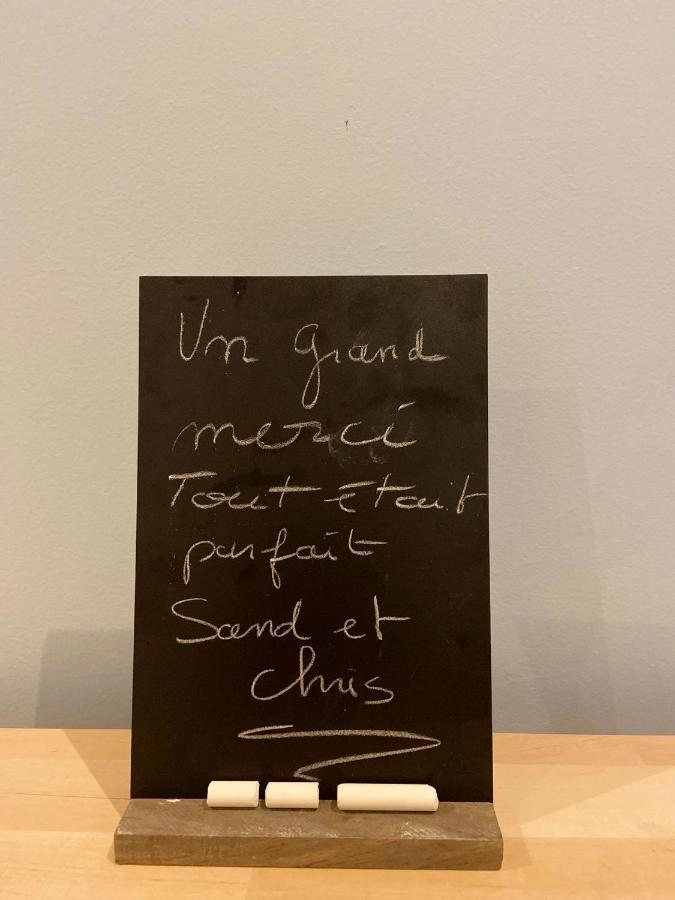 Un grand
merci
Tout était
parfait
Sand et
Chris